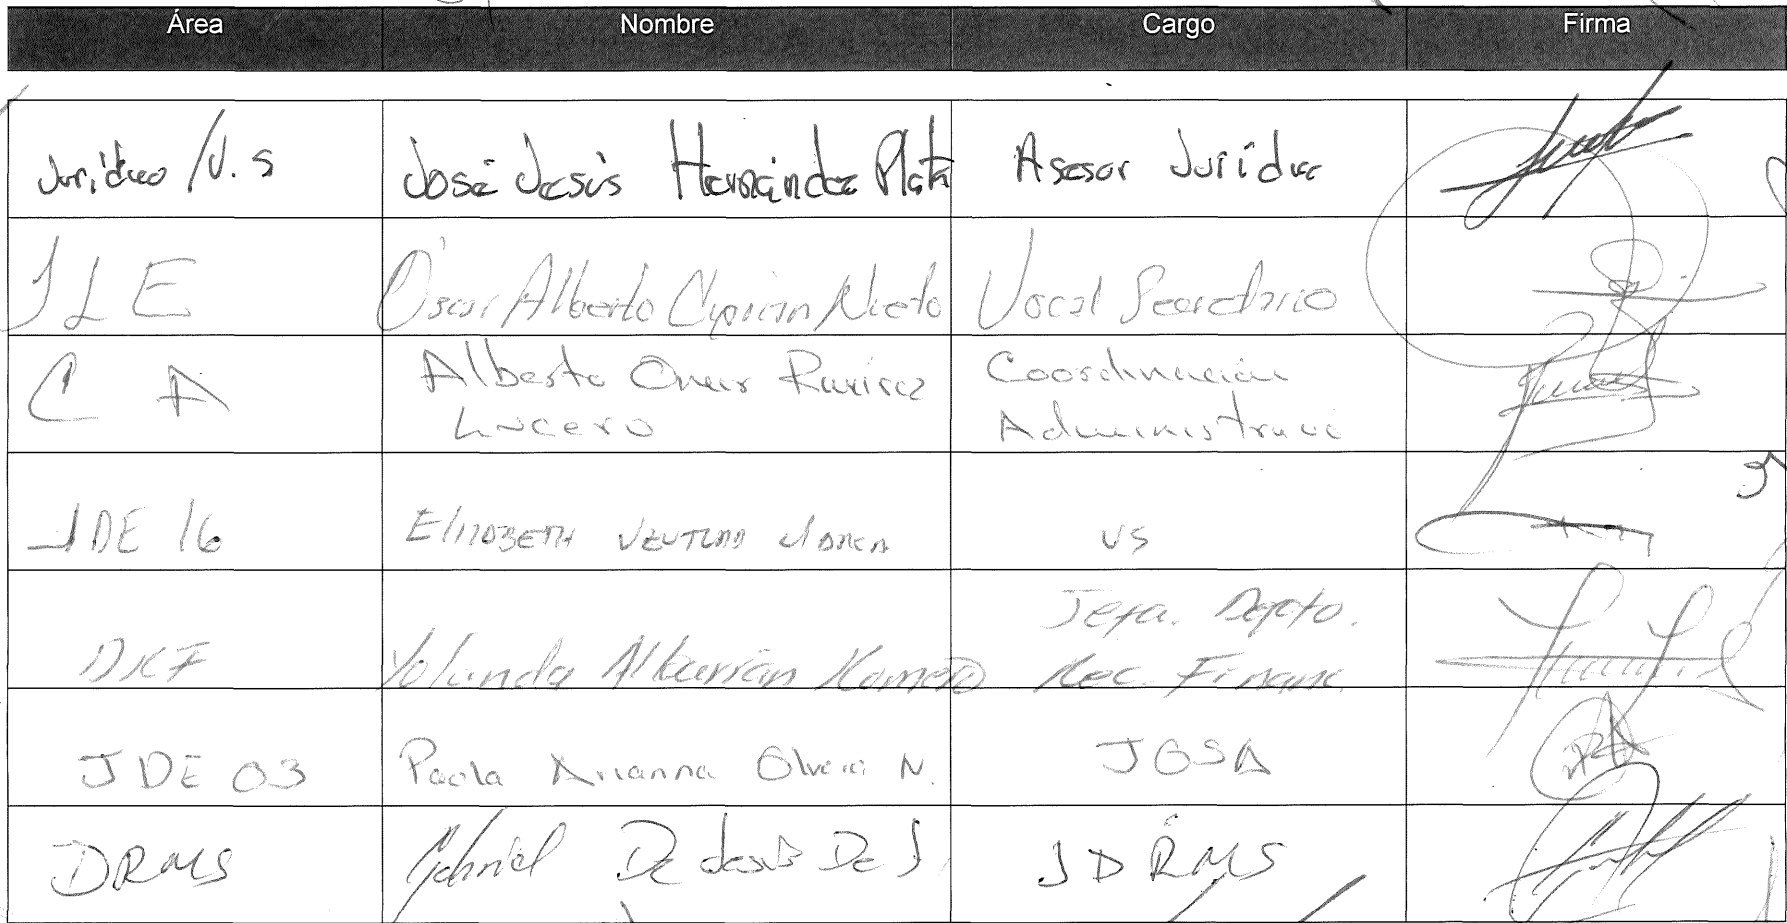 Área Nombre Cargo Firma
Jurídico /V.S José Jesús Hernández Plata Asesor Jurídico
JLE Óscar Alberto Ciprián Nieto Vocal Secretario
CA Alberto Omar Ramírez Coordinación
Lucero Administrativa
JDE 16 Elizabeth Ventura VS
Jefa. Depto.
DRF Yolanda Albarrán Romero Rec. Financ.
JDE 03 Paola Arianna Olvera N. JOSA
DRMS Gabriel De Jesús De J. JDRMS